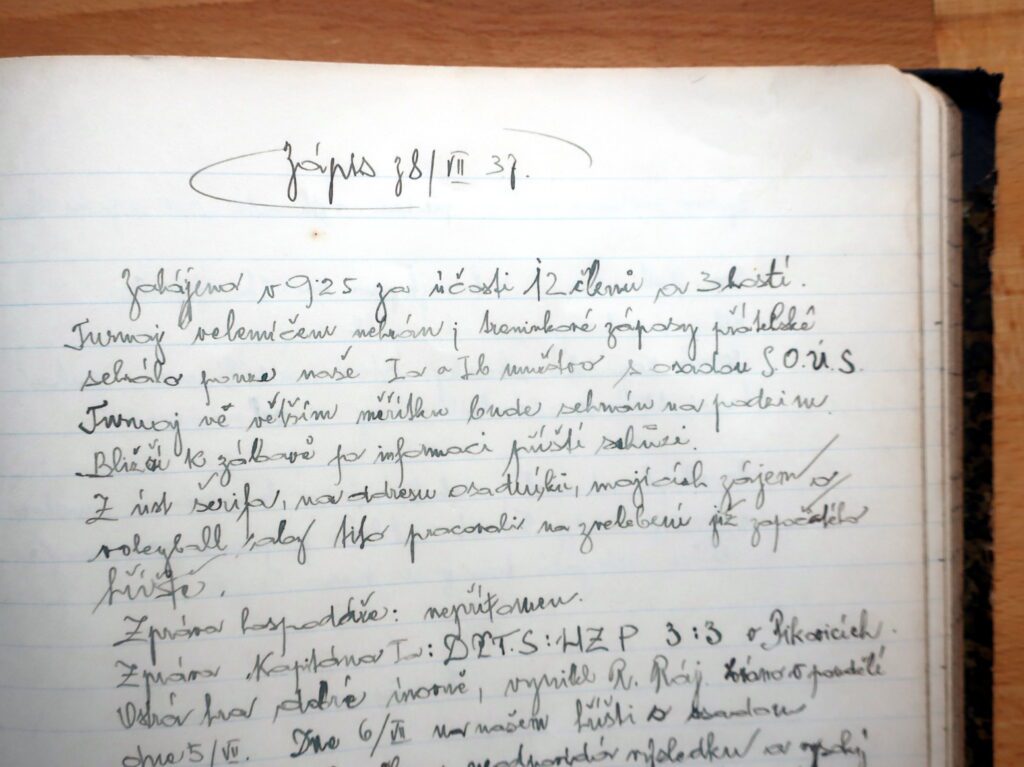 Zápis z 8/VII 37.
Zahájeno v 9·25 za účasti 12 členů a 3 hostí.
Turnaj nehrán; treninkové zápasy přátelské
sehrálo pouze naše Ia a Ib mužstvo s osadou S.O.Ú.S.
Turnaj ve větším měřítku bude sehrán na podzim.
Bližší k zábavě po informaci příští schůzi.
Z úst šerifa, na adresu osadníků, majících zájem o
voleyball, aby tito pracovali na zvelebení již započatého
hříště.
Zpráva hospodáře: nepřítomen.
Zpráva Kapitána Ia: : HZP 3:3 v Pikovicích.
Ostrá hra, dobré úrovně, vynikl R. Ráj. v pondělí
dne 5/VII. Dne 6/VII na našem hříšti s osadou
výsledku a vysoký